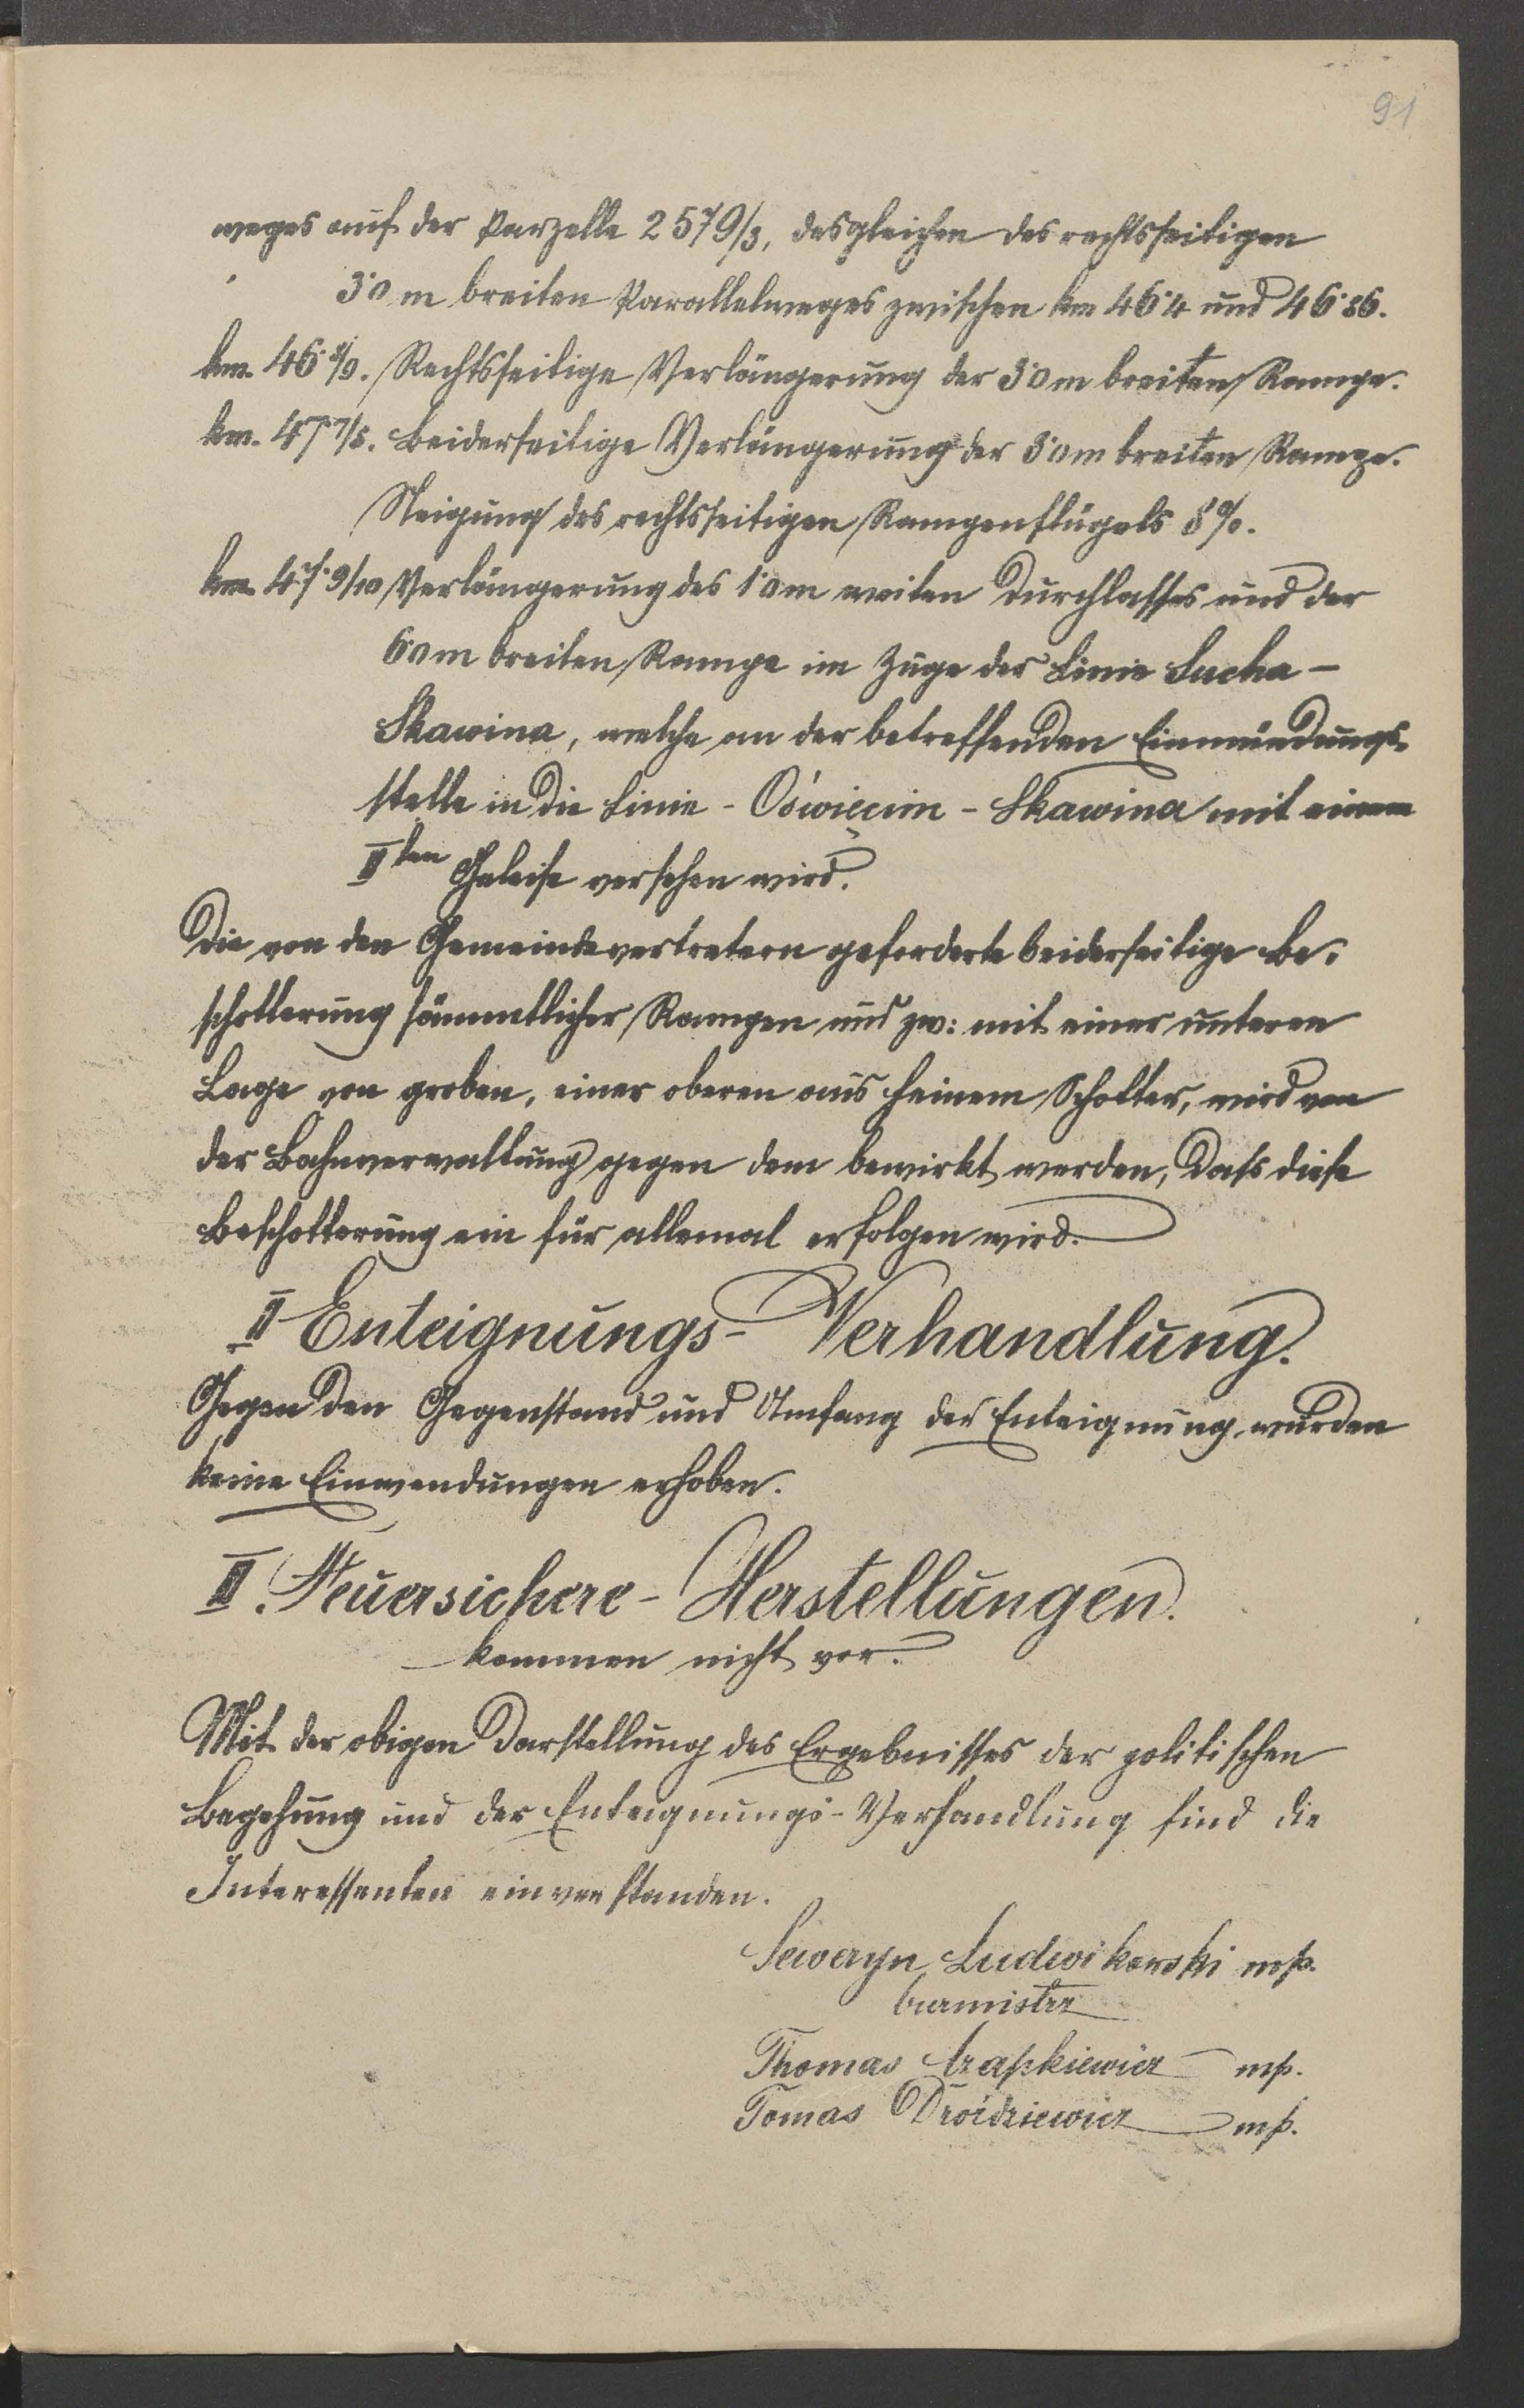 91
weges auf der Parzelle 2579/3, desgleichen des rechtsseitigen
3·0 m breiten Parallelweges zwischen km 46·4 und 46·86.
km. 46·8/9. Rechtsseitige Verlängerung der 3·0 m breiten Rampe.
km. 47 7/8. Beiderseitige Verlängerung der 3·0 m breiten Rampe.
Steigung des rechtsseitigen Rampenflügels 8%.
km. 47·9/10 Verlängerung des 1·0 m weiten Durchlasses und der
6·0 m breiten Rampe im Zuge der Linie Sucha –
Skawina, welche an der betreffenden Einmündungs-
stelle in die Linie - Oświęcim - Skawina mit einem
IIten Geleise versehen wird.
Die von den Gemeindevertretern geforderte beiderseitige Be-
schotterung sämmtlicher Rampen und zw: mit einer unteren
Lage von groben, einer oberen aus feinem Schotter, wird von
der Bahnverwaltung gegen dem bewirkt werden, dass diese
Beschotterung ein für allemal erfolgen wird.
II Enteignungs- Verhandlung.
Gegen den Gegenstand und Umfang der Enteignung wurden
keine Einwendungen erhoben.
III. Feuersichere - Herstellungen.
kommen nicht vor.
Mit der obigen Darstellung des Ergebnisses der politischen
Begehung und der Enteignungs-Verhandlung sind die
Interessenten einverstanden.
Seweryn Ludwikowski mp.
burmistrz
Thomas Czapkiewicz mp.
Tomas Droździewicz mp.